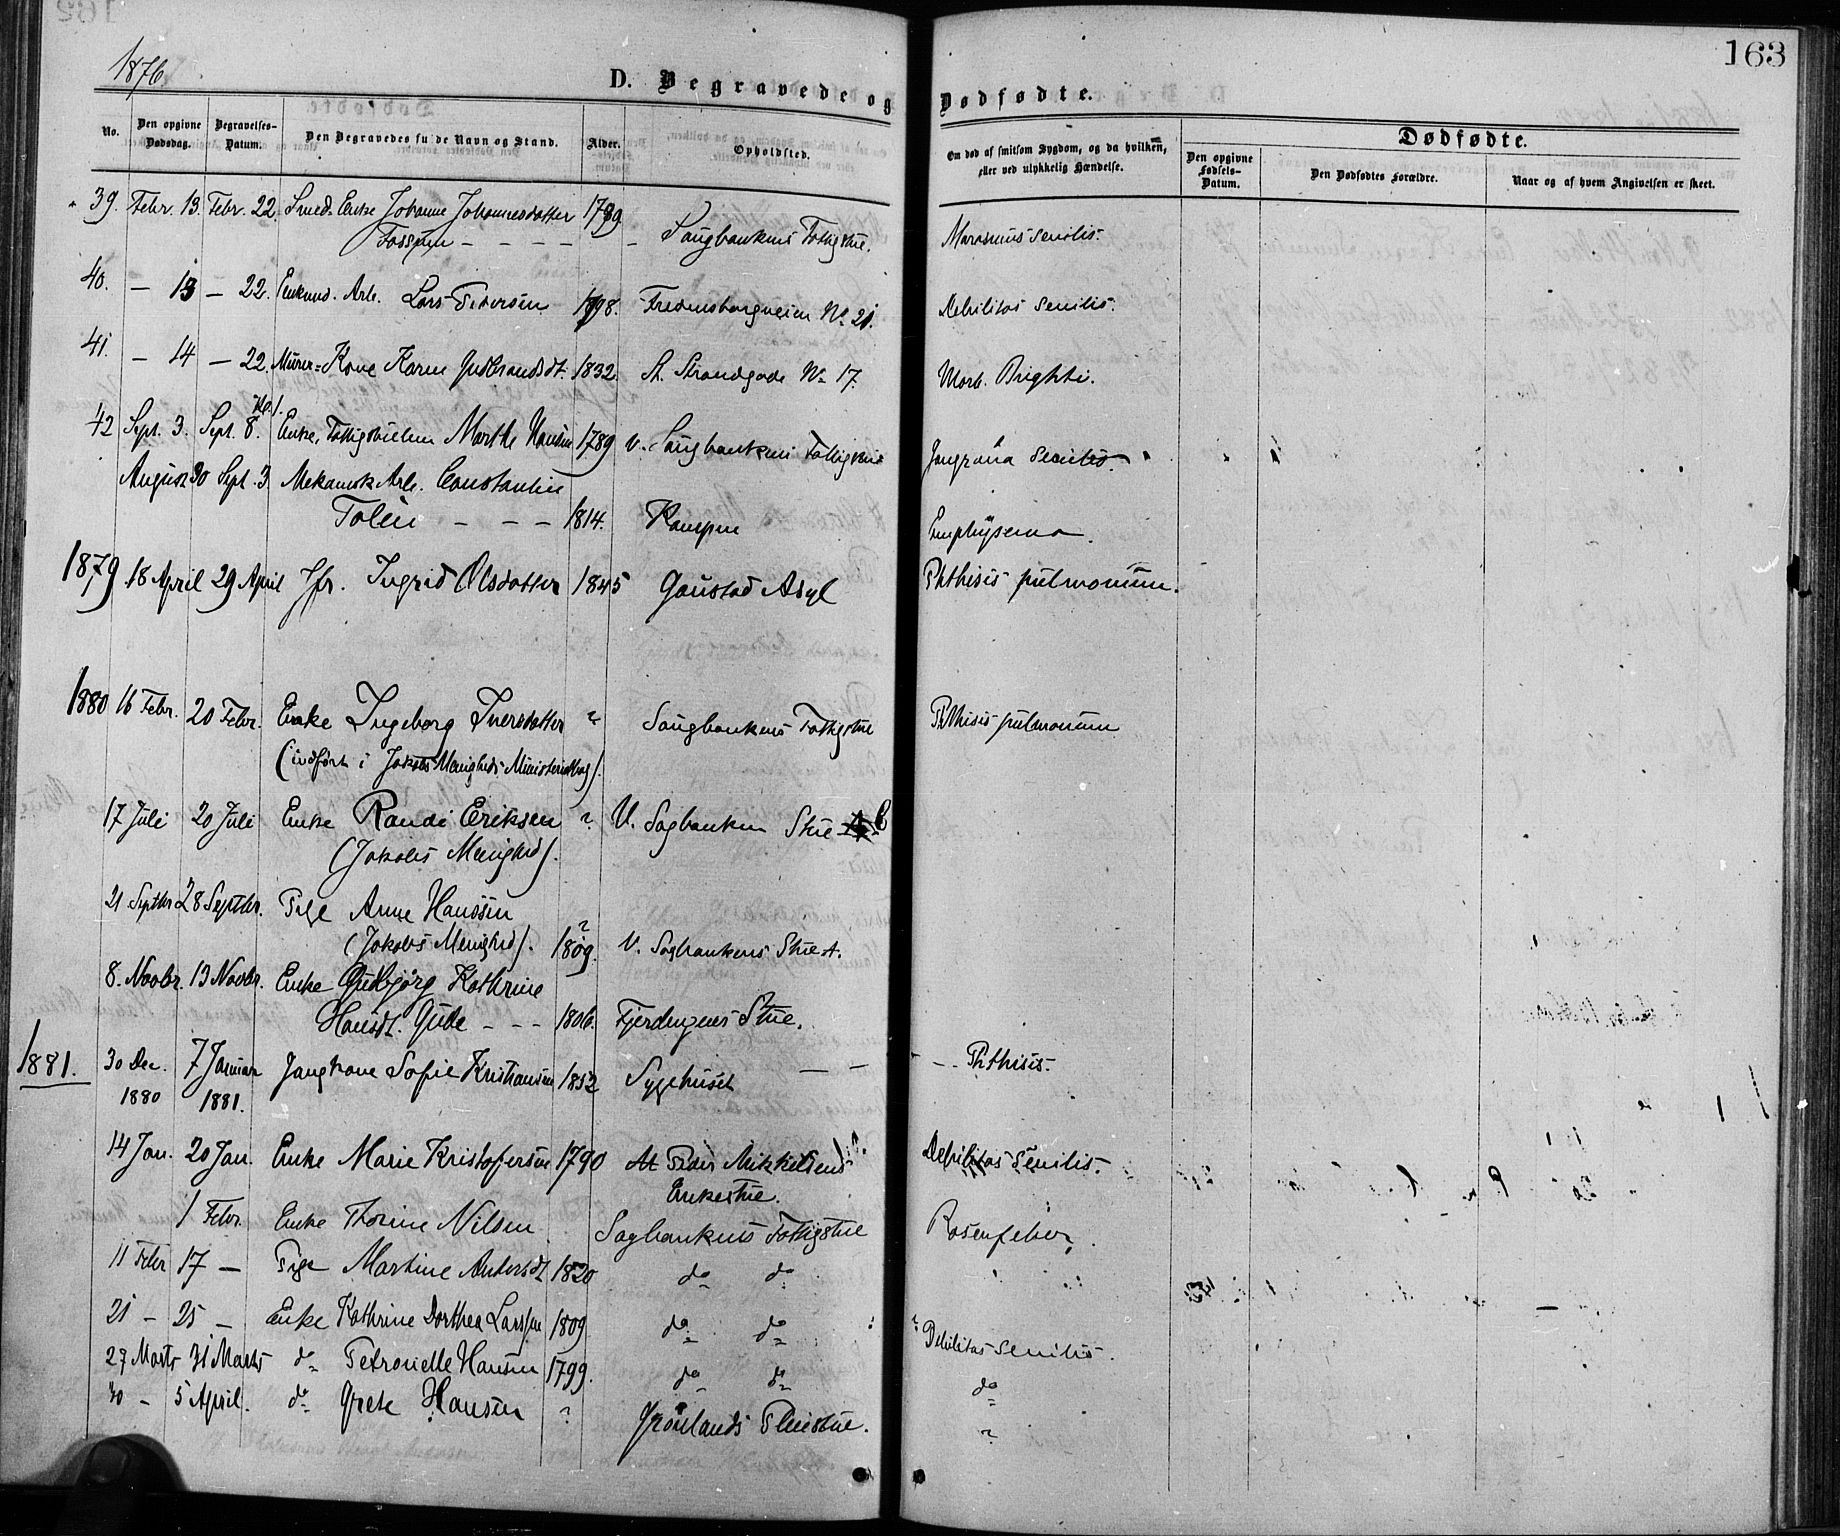 163
1876
D. Begravede og Dødfødte.
No. Den opgivne Dødsdag. Begravelses-Datum. Den Begravedes fulde Navn og Stand. Alder. Opholdsted. Om død af smitsom Sygdom, og da hvilken, eller ved ulykkelig Hændelse. Dødfødte.
Den opgivne Fødsels-Datum. Den Dødfødtes Forældre. Naar og af hvem Angivelsen er skeet.
39. Febr. 13. Febr. 22. Smed-Enke Johanne Johannesdatter 1789
Fossum - - - - - Saugbankens Fattigstue. Marasmus senilis.
40. — 13 — 22. Enkemd. Arb. Lars Pedersen 1798. Fredensborgveien No 21. Debilitas senilis.
41. — 14 — 22. Murer-Kone Karen Gudbrandsdt. 1832. St. Strandgade No 17. Morb. Brightii.
42 Sept. 3. Sept. 8. Enke, Fattiglem Marthe Hansen 1789 V. Saugbankens Fattigstue Gangræna senilis.
August 30 Sept. 3. Mekanisk Arb. Constantin
Tolin - - - 1814. Kampen Emphysema.
1879 18 April 29 April Jfr. Ingrid Olsdatter 1845 Gaustad Asyl Phthisis pulmonum.
1880 16 Febr. 20 Febr. Enke Ingeborg Iversdatter ? Saugbankens Fattigstue Phthisis pulmonum
(indført i Jakobs Menigheds Ministerialbog).
17 Juli 20 Juli Enke Randi Eriksen ? V. Sagbanken Stue C
(Jakobs Menighed).
21 Septbr 28 Septbr. Pige Anne Hanssen
(Jakobs Menighed). 1809. ? V. Sagbankens Stue A.
8. Novbr. 13 Novbr. Enke Gudbjørg Kathrine
Hansdt. Gude - - - 1806. Fjerdingens Stue.
1881. 30 Dec. 7 Januar Gaugkone Sofie Kristiansen 1852 Sygehuset — — Phthisis.
1880 1881.
14 Jan. 20 Jan. Enke Marie Kristofersen 1790 At Peder Mikkelsens Debilitas senilis.
Enkestue.
1 Febr Enke Thorine Nilsen Sagbankens Fattigstue Rosenfeber
11 Febr 17 — Pige Martine Andersdt 1820 do do
21 — 25 — Enke Kathrine Dorthea Larssen 1809. do do ? Debilitas senilis.
27 Marts 31 Marts do Petronelle Hansen 1799. do do do
30 — 5 April. do Grete Hansen ? Grønlands Pleiestue. ?